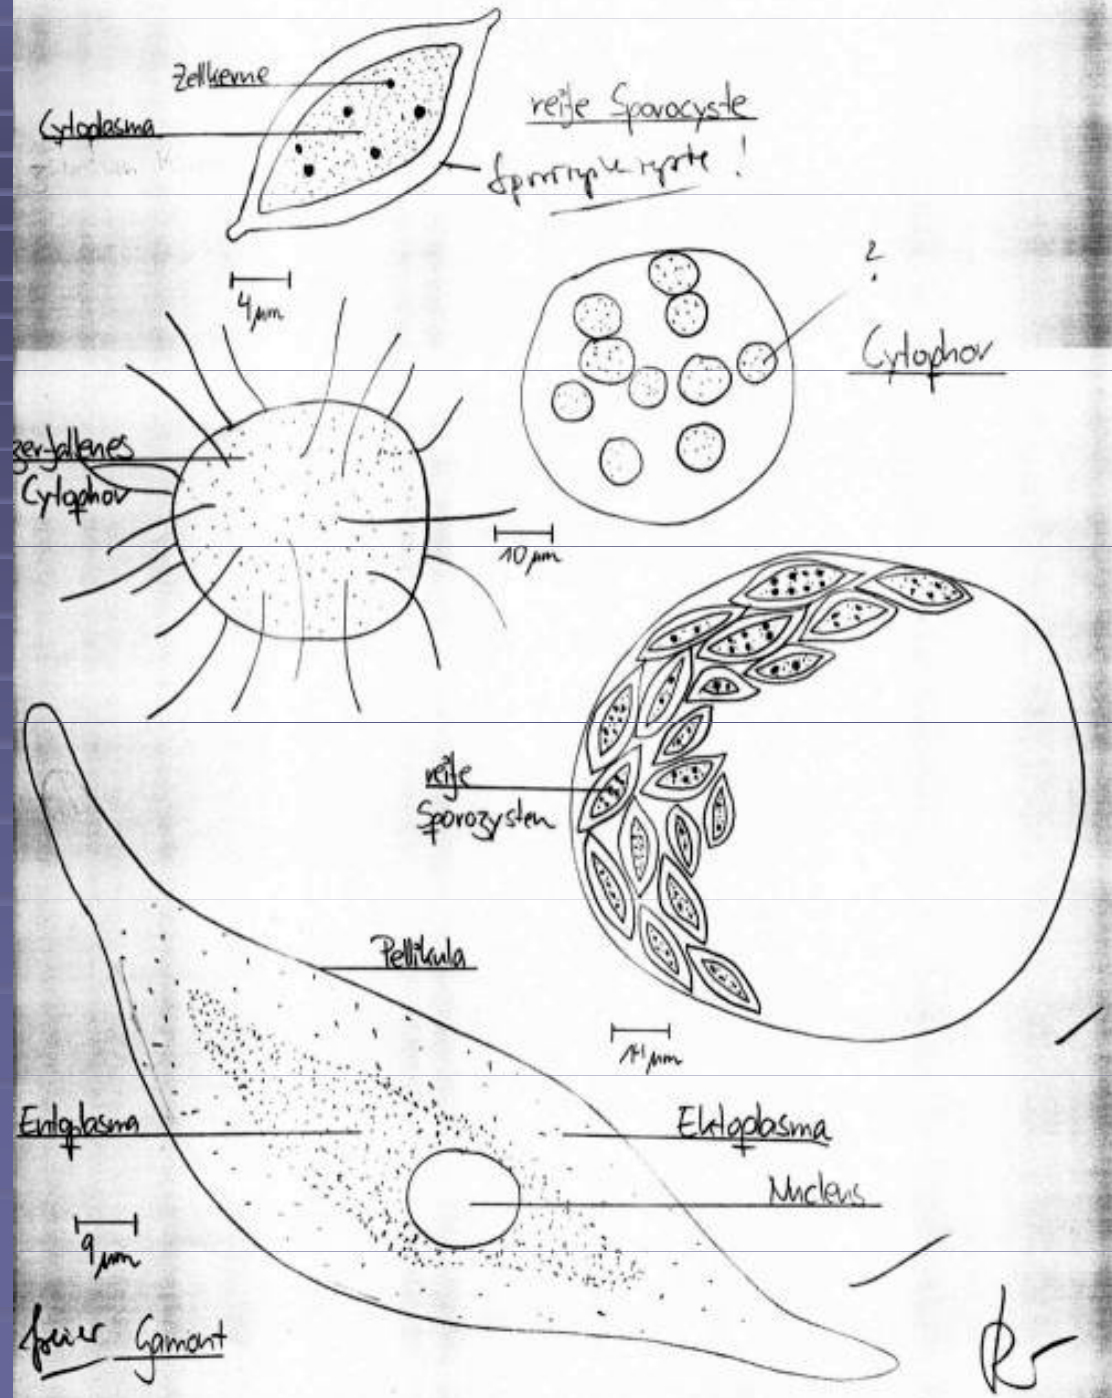 Zellkerne
Cytoplasma
reife Sporocyste
!
4 µm
?
Cytophor
zerfallenes
Cytophor
10 µm
reife
Sporozysten
Pellikula
14 µm
Entoplasma
Ektoplasma
Nucleus
9 µm
freier Gamont